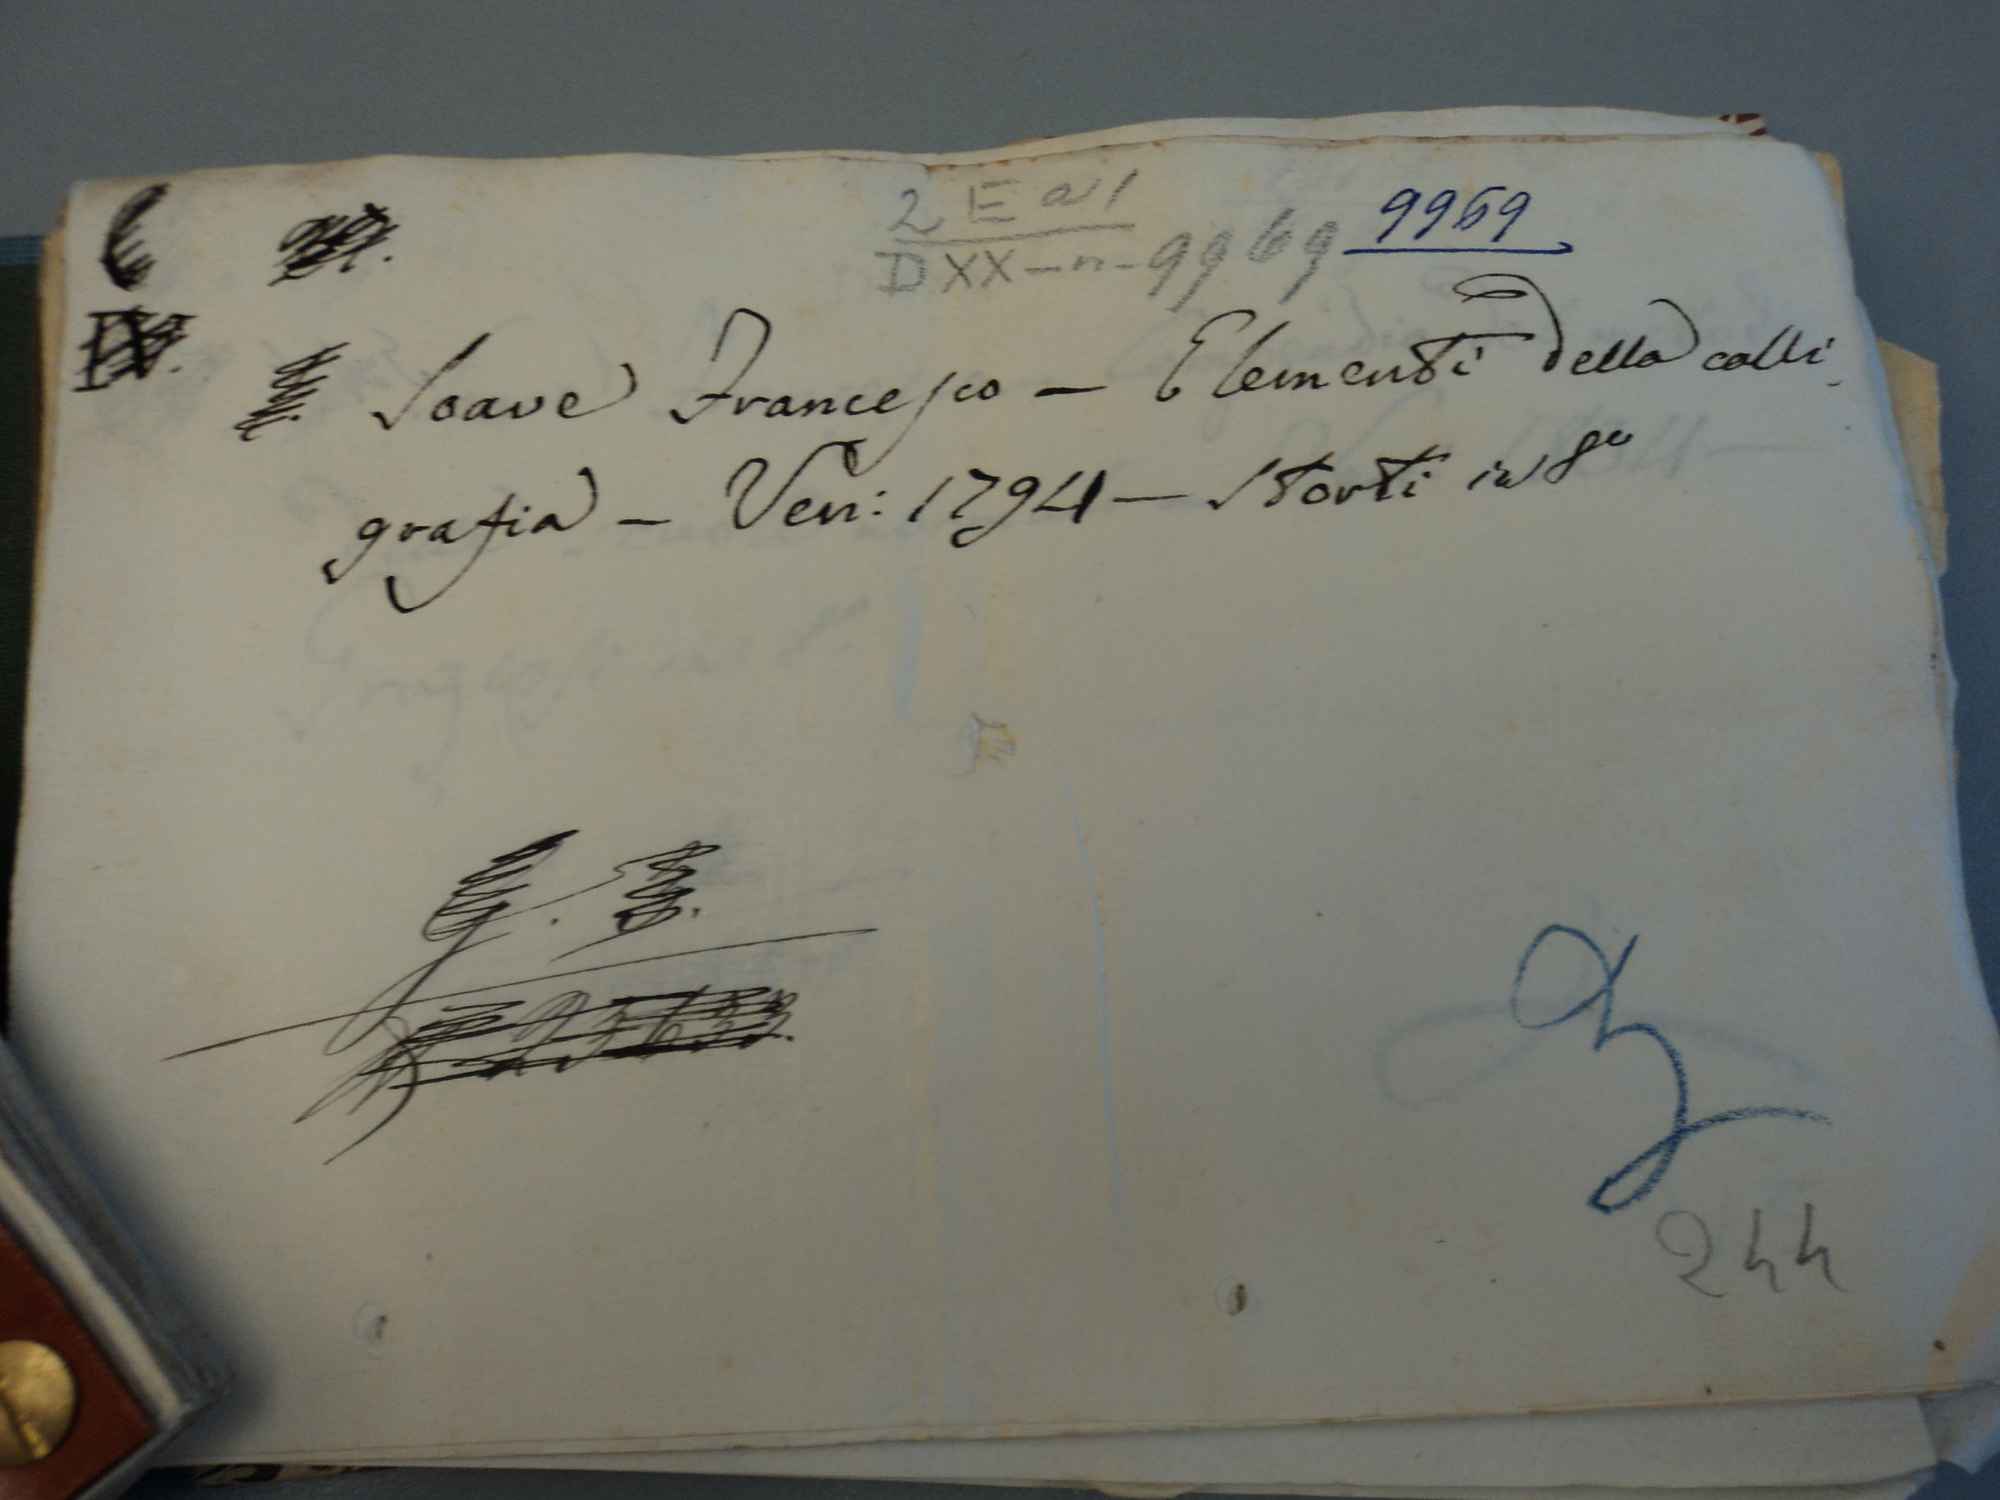 2 E a 1 9969
D XX - n - 9969
Soave Francesco - Elementi della calli
grafia - Ven: 1794 - Storti in 8º
244